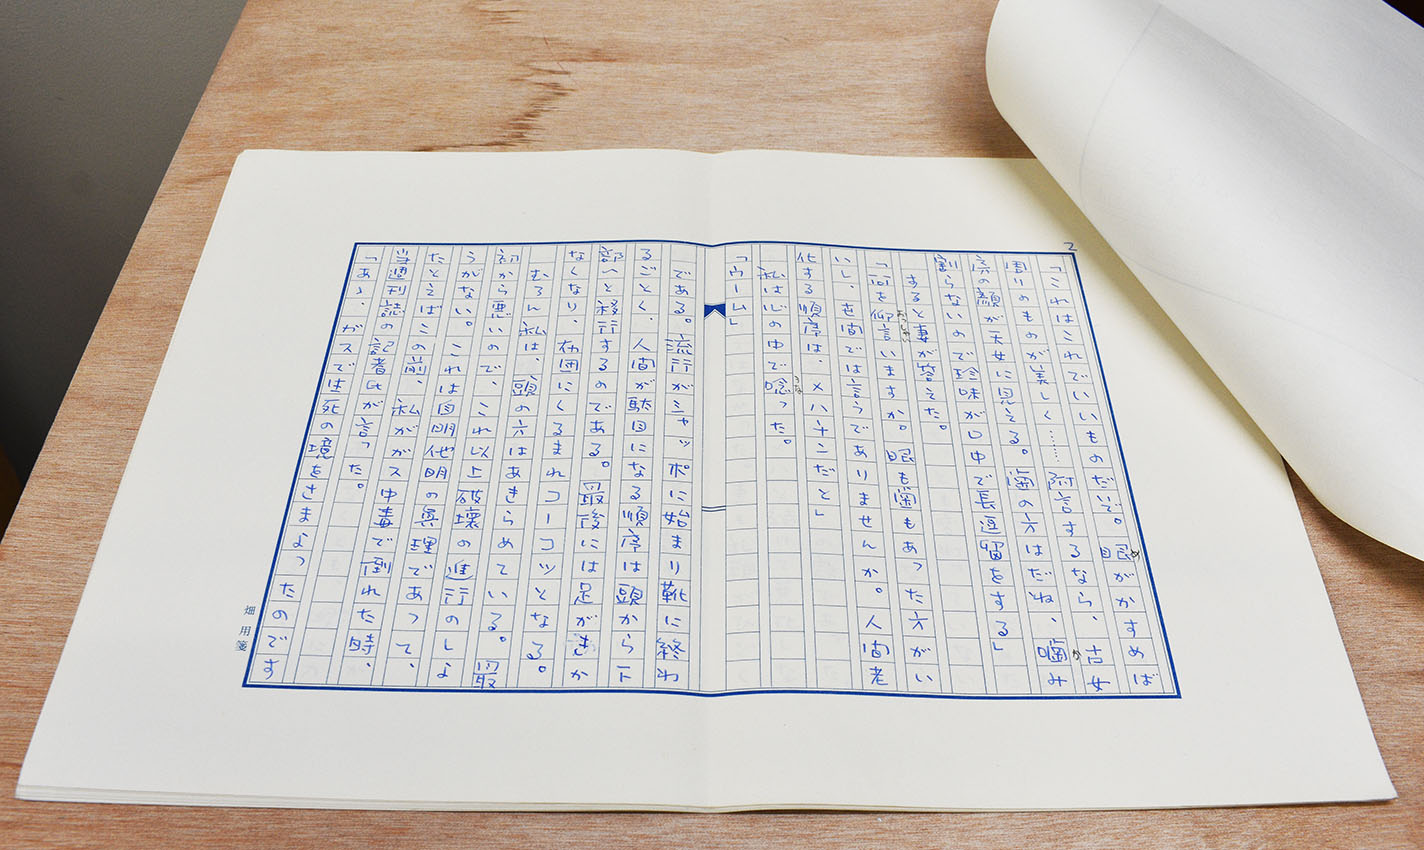 2
「これはこれでいいものだいぞ。眼がかすめば
周りのものが美しく……附言するなら、古女
房の顔が天女に見える。歯の方はだね、噛み
割らないので珍味が口中で長逗留をする」
すると妻が答えた。
「何を仰言いますか。眼も歯もあった方がい
いし、世間では言うでありませんか。人間老
化する順序は、メハチンだと」
私は心の中で唸った。
「ウーム」
である。流行がシャッポに始まり靴に終わ
るごとく、人間が駄目になる順序は頭から下
部へと移行するのである。最後には足がきか
なくなり、布団にくるまれコーコツとなる。
むろん私は、頭の方はあきらめている。最
初から悪いので、これ以上破壊の進行のしよ
うがない。これは自明他明の真理であって、
たとえばこの前、私がガス中毒で倒れた時、
当週刊誌の記者氏が言った。
「あゝ、ガスで生死の境をさまよったのです
め
か
おっしゃ
うな
畑用箋